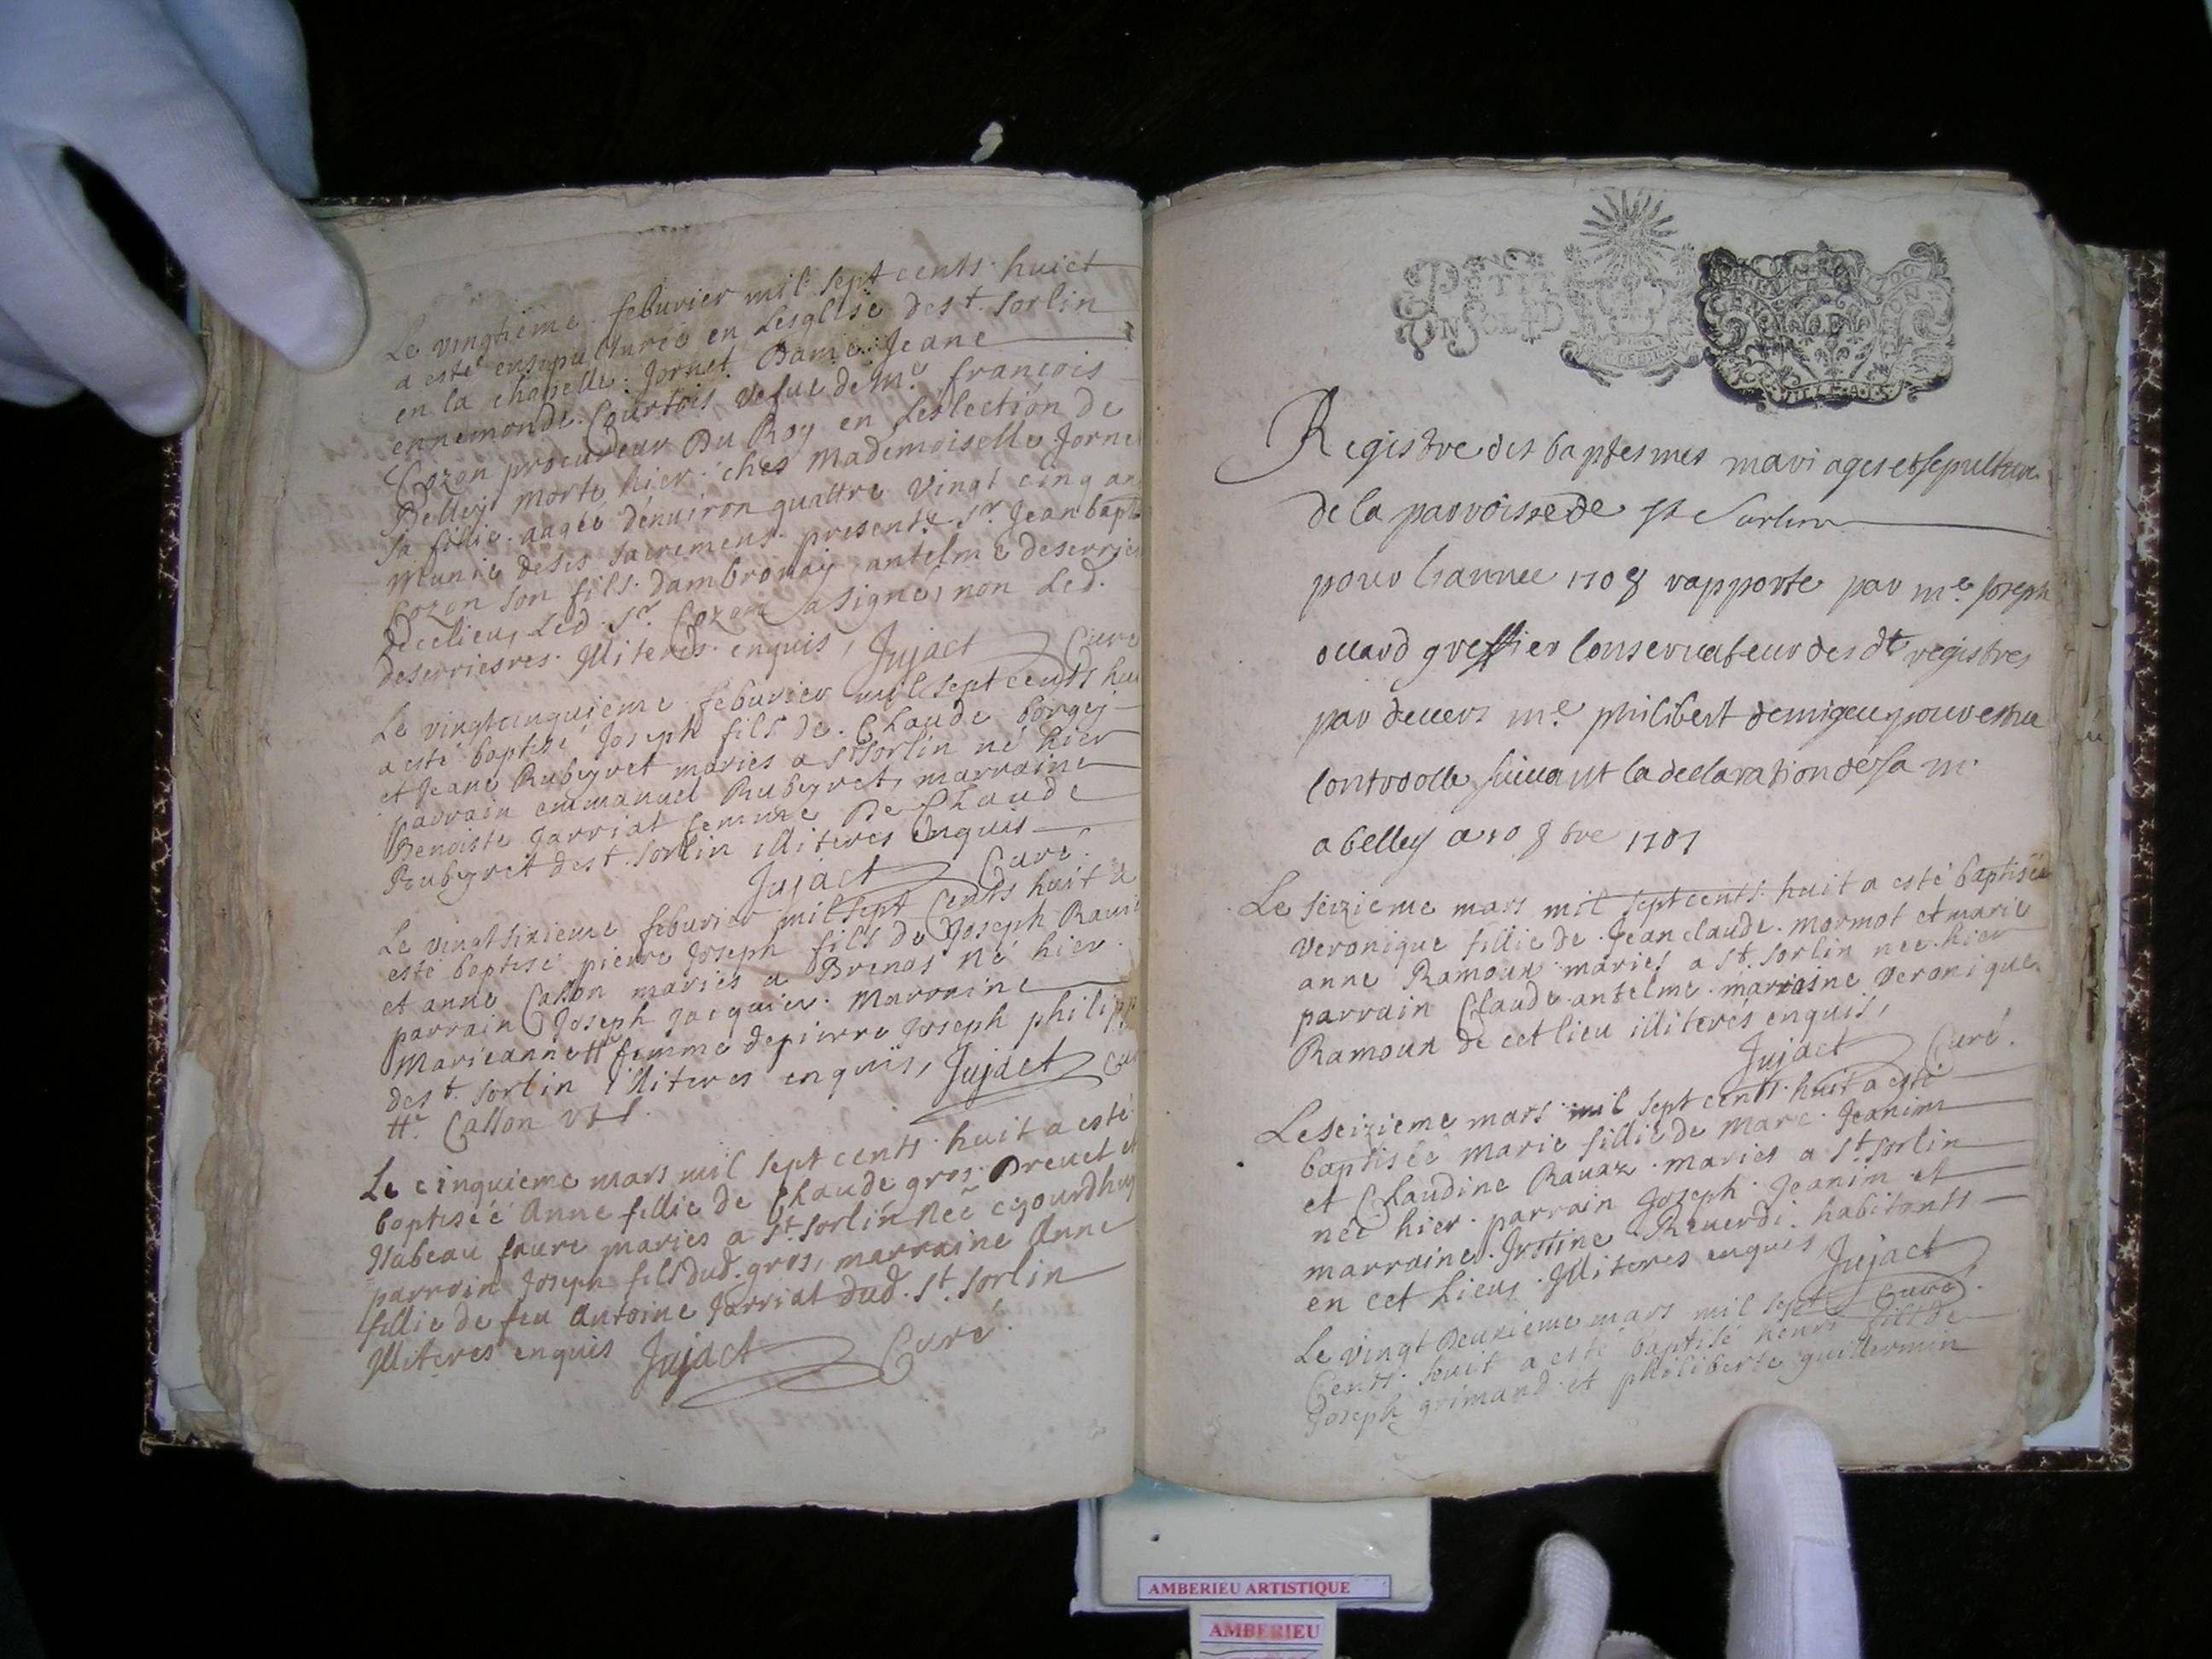 Le vingtieme febvrier mil sept cents huict
a esté ensepulturée en Lesglise de st. Sorlin
en la chappelle Jornet Dame Jeane
ennemonde Courtois vefue de Me francois
Cozon procureur Du Roy en Leslection de
Belley morte hier ches Mademoiselle Jorne
sa fillie aagée denuiron quattre vingt cinq an
munie de ses sacremens presents Sr Jean bapt
Cozon son fils dambronay antelme deserrie
decelieu, Led. Sr. Cozon a signé, non Led.
deserriesres illiteres enquis, Jujact Curé
Le vingtcinquieme febvrier mil sept cents hui
a esté baptisé Joseph fils de Claude borgey
et Jeane Rubeyret maries a St Sorlin né hier
parrain emmanuel Rubeyret, marraine
Benoiste Jarriat femme De Claude
Roubeyret de st. Sorlin illiteres enquis
Jujact Curé
Le vingtsixieme febvrier mil sept Cents huit a
esté baptisé pierre Joseph fils de Joseph Ravi
et anne Callon mariés a Brenas né hier
parrain Joseph Jacquier Marraine
Marieanne # femme de pierre Joseph philipp
de st. Sorlin illiteres enquis, Jujact Cur
#. Callon
Le cinquieme mars mil sept cents huit a esté
baptiséé Anne fillie de Claude gros Brevet et
Isabeau faure maries a St. Sorlin Neé cejourdhuy
parrain Joseph fils dud. gros, marraine Anne
fillie de feu Antoine Jarriat dud. St. Sorlin
illiteres enquis Jujact Curé
PETIT
UN SOL
Registre des baptesmes mariages et sepulture
de la parroisse de St Sorlin
pour lannee 1708 rapporte par me. Joseph
ouard greffier Conservateur des dt registres
par devers me. philibert demigeu pour estre
Controolle suivant la declaration de sa m.
a belley a 10 8bre 1707
Le seizieme mars mil sept cents huit a esté baptisée
veronique fillie de Jean claude mormot et marie
anne Ramoux maries a St. Sorlin neé hier
parrain Claude antelme marraine veronique
Ramoux de cet lieu illiterés enquis,
Jujact Curé.
Le seizieme mars mil sept cents huit a esté
baptiséé Marie fillie de Marc Jeanin
et Claudine Ravaz maries a St Sorlin
neé hier parrain Joseph Jeanin et
marraine Justine Reverdi habitants
en cet Lieu, illiteres enquis Jujact
Curé.
Le vingt Deuxieme mars mil sept
Cents huit a esté baptisé henri fils de
Joseph grimand et philiberte guillermin
AMBERIEU ARTISTIQUE
AMBERIEU